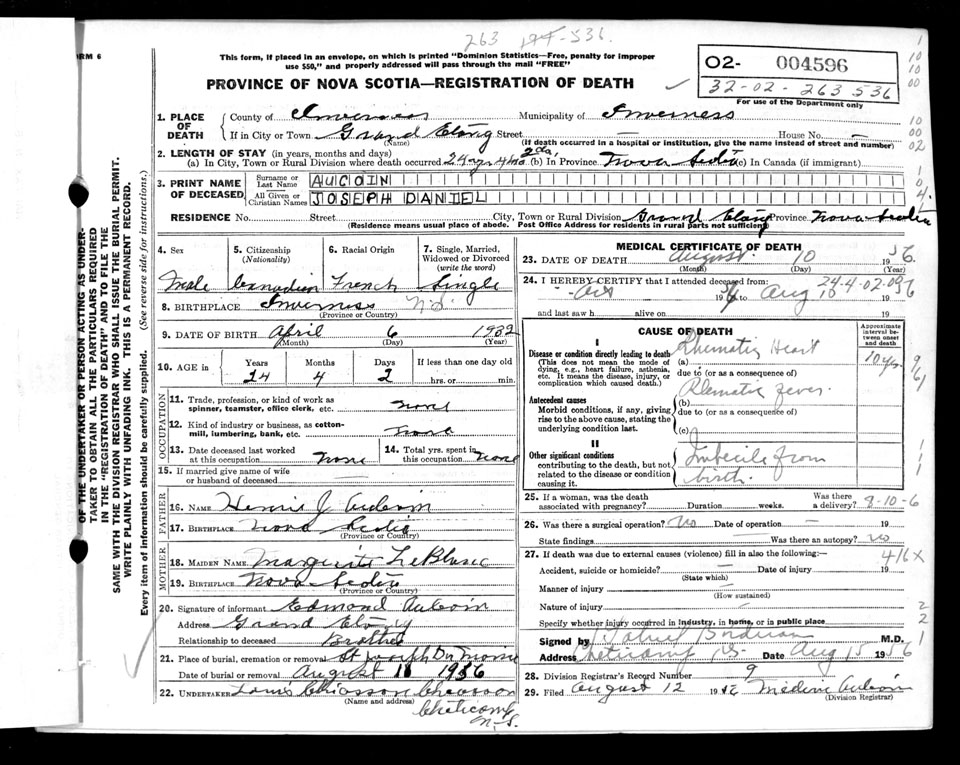 263 194-536.
ORM 6
This form, if placed in an envelope, on which is printed "Dominion Statistics—Free, penalty for improper
use $50," and properly addressed will pass through the mail "FREE"
PROVINCE OF NOVA SCOTIA—REGISTRATION OF DEATH
O2- 004596
32-02-263 536
For use of the Department only
1. PLACE OF DEATH
County of Inverness Municipality of Inverness
If in City or Town Grand Etang Street — House No. —
(Name) (If death occurred in a hospital or institution, give the name instead of street and number)
2. LENGTH OF STAY (in years, months and days)
(a) In City, Town or Rural Division where death occurred 24 yrs 4 mo 2 da, (b) In Province Nova Scotia (c) In Canada (if immigrant)
3. PRINT NAME OF DECEASED
Surname or Last Name AUCOIN
All Given or Christian Names JOSEPH DANIEL
RESIDENCE No. Street City, Town or Rural Division Grand Etang Province Nova Scotia
(Residence means usual place of abode. Post Office Address for residents in rural parts not sufficient)
4. Sex Male
5. Citizenship (Nationality) Canadian
6. Racial Origin French
7. Single, Married, Widowed or Divorced (write the word) Single
8. BIRTHPLACE Inverness N.S.
(Province or Country)
9. DATE OF BIRTH April 6 1932
(Month) (Day) (Year)
10. AGE in Years 24 Months 4 Days 2 If less than one day old hrs. or min.
OCCUPATION
11. Trade, profession, or kind of work as spinner, teamster, office clerk, etc. None
12. Kind of industry or business, as cotton-mill, lumbering, bank, etc. None
13. Date deceased last worked at this occupation None
14. Total yrs. spent in this occupation None
15. If married give name of wife or husband of deceased
FATHER
16. NAME Henri J Aucoin
17. BIRTHPLACE Nova Scotia
(Province or Country)
MOTHER
18. MAIDEN NAME Marguerite LeBlanc
19. BIRTHPLACE Nova Scotia
(Province or Country)
20. Signature of informant Edmond Aucoin
Address Grand Etang
Relationship to deceased Brother
21. Place of burial, cremation or removal St Joseph Du Moine
Date of burial or removal August 1956
22. UNDERTAKER Louis Chiasson
(Name and address) Cheticamp N.S.
MEDICAL CERTIFICATE OF DEATH
23. DATE OF DEATH August 10 1956.
(Month) (Day) (Year)
24. I HEREBY CERTIFY that I attended deceased from:
24-4-02-09
to Aug 10 1956
and last saw h alive on 19
CAUSE OF DEATH
Approximate interval between onset and death
I
Disease or condition directly leading to death
(This does not mean the mode of dying, e.g., heart failure, asthenia, etc. It means the disease, injury, or complication which caused death.)
(a) Rhematic Heart 10 yrs.
due to (or as a consequence of)
Antecedent causes
Morbid conditions, if any, giving rise to the above cause, stating the underlying condition last.
(b) Rhematic fever.
due to (or as a consequence of)
(c)
II
Other significant conditions
contributing to the death, but not related to the disease or condition causing it.
Imbecile from
birth.
25. If a woman, was the death associated with pregnancy? Duration weeks. Was there a delivery? 8-10-6
26. Was there a surgical operation? no Date of operation —
State findings Was there an autopsy? no
27. If death was due to external causes (violence) fill in also the following:— 416X
Accident, suicide or homicide? — Date of injury 19
(State which)
Manner of injury —
(How sustained)
Nature of injury
Specify whether injury occurred in industry, in home, or in public place
Signed by M.D.
Address Cheticamp Date Aug 15 1956
28. Division Registrar's Record Number 9
29. Filed August 12 1956 Aucoin
(Division Registrar)
OF THE UNDERTAKER OR PERSON ACTING AS UNDER-
TAKER TO OBTAIN ALL THE PARTICULARS REQUIRED
IN THE "REGISTRATION OF DEATH" AND TO FILE THE
SAME WITH THE DIVISION REGISTRAR WHO SHALL ISSUE THE BURIAL PERMIT.
WRITE PLAINLY WITH UNFADING INK. THIS IS A PERMANENT RECORD.
Every item of information should be carefully supplied. (See reverse side for instructions.)